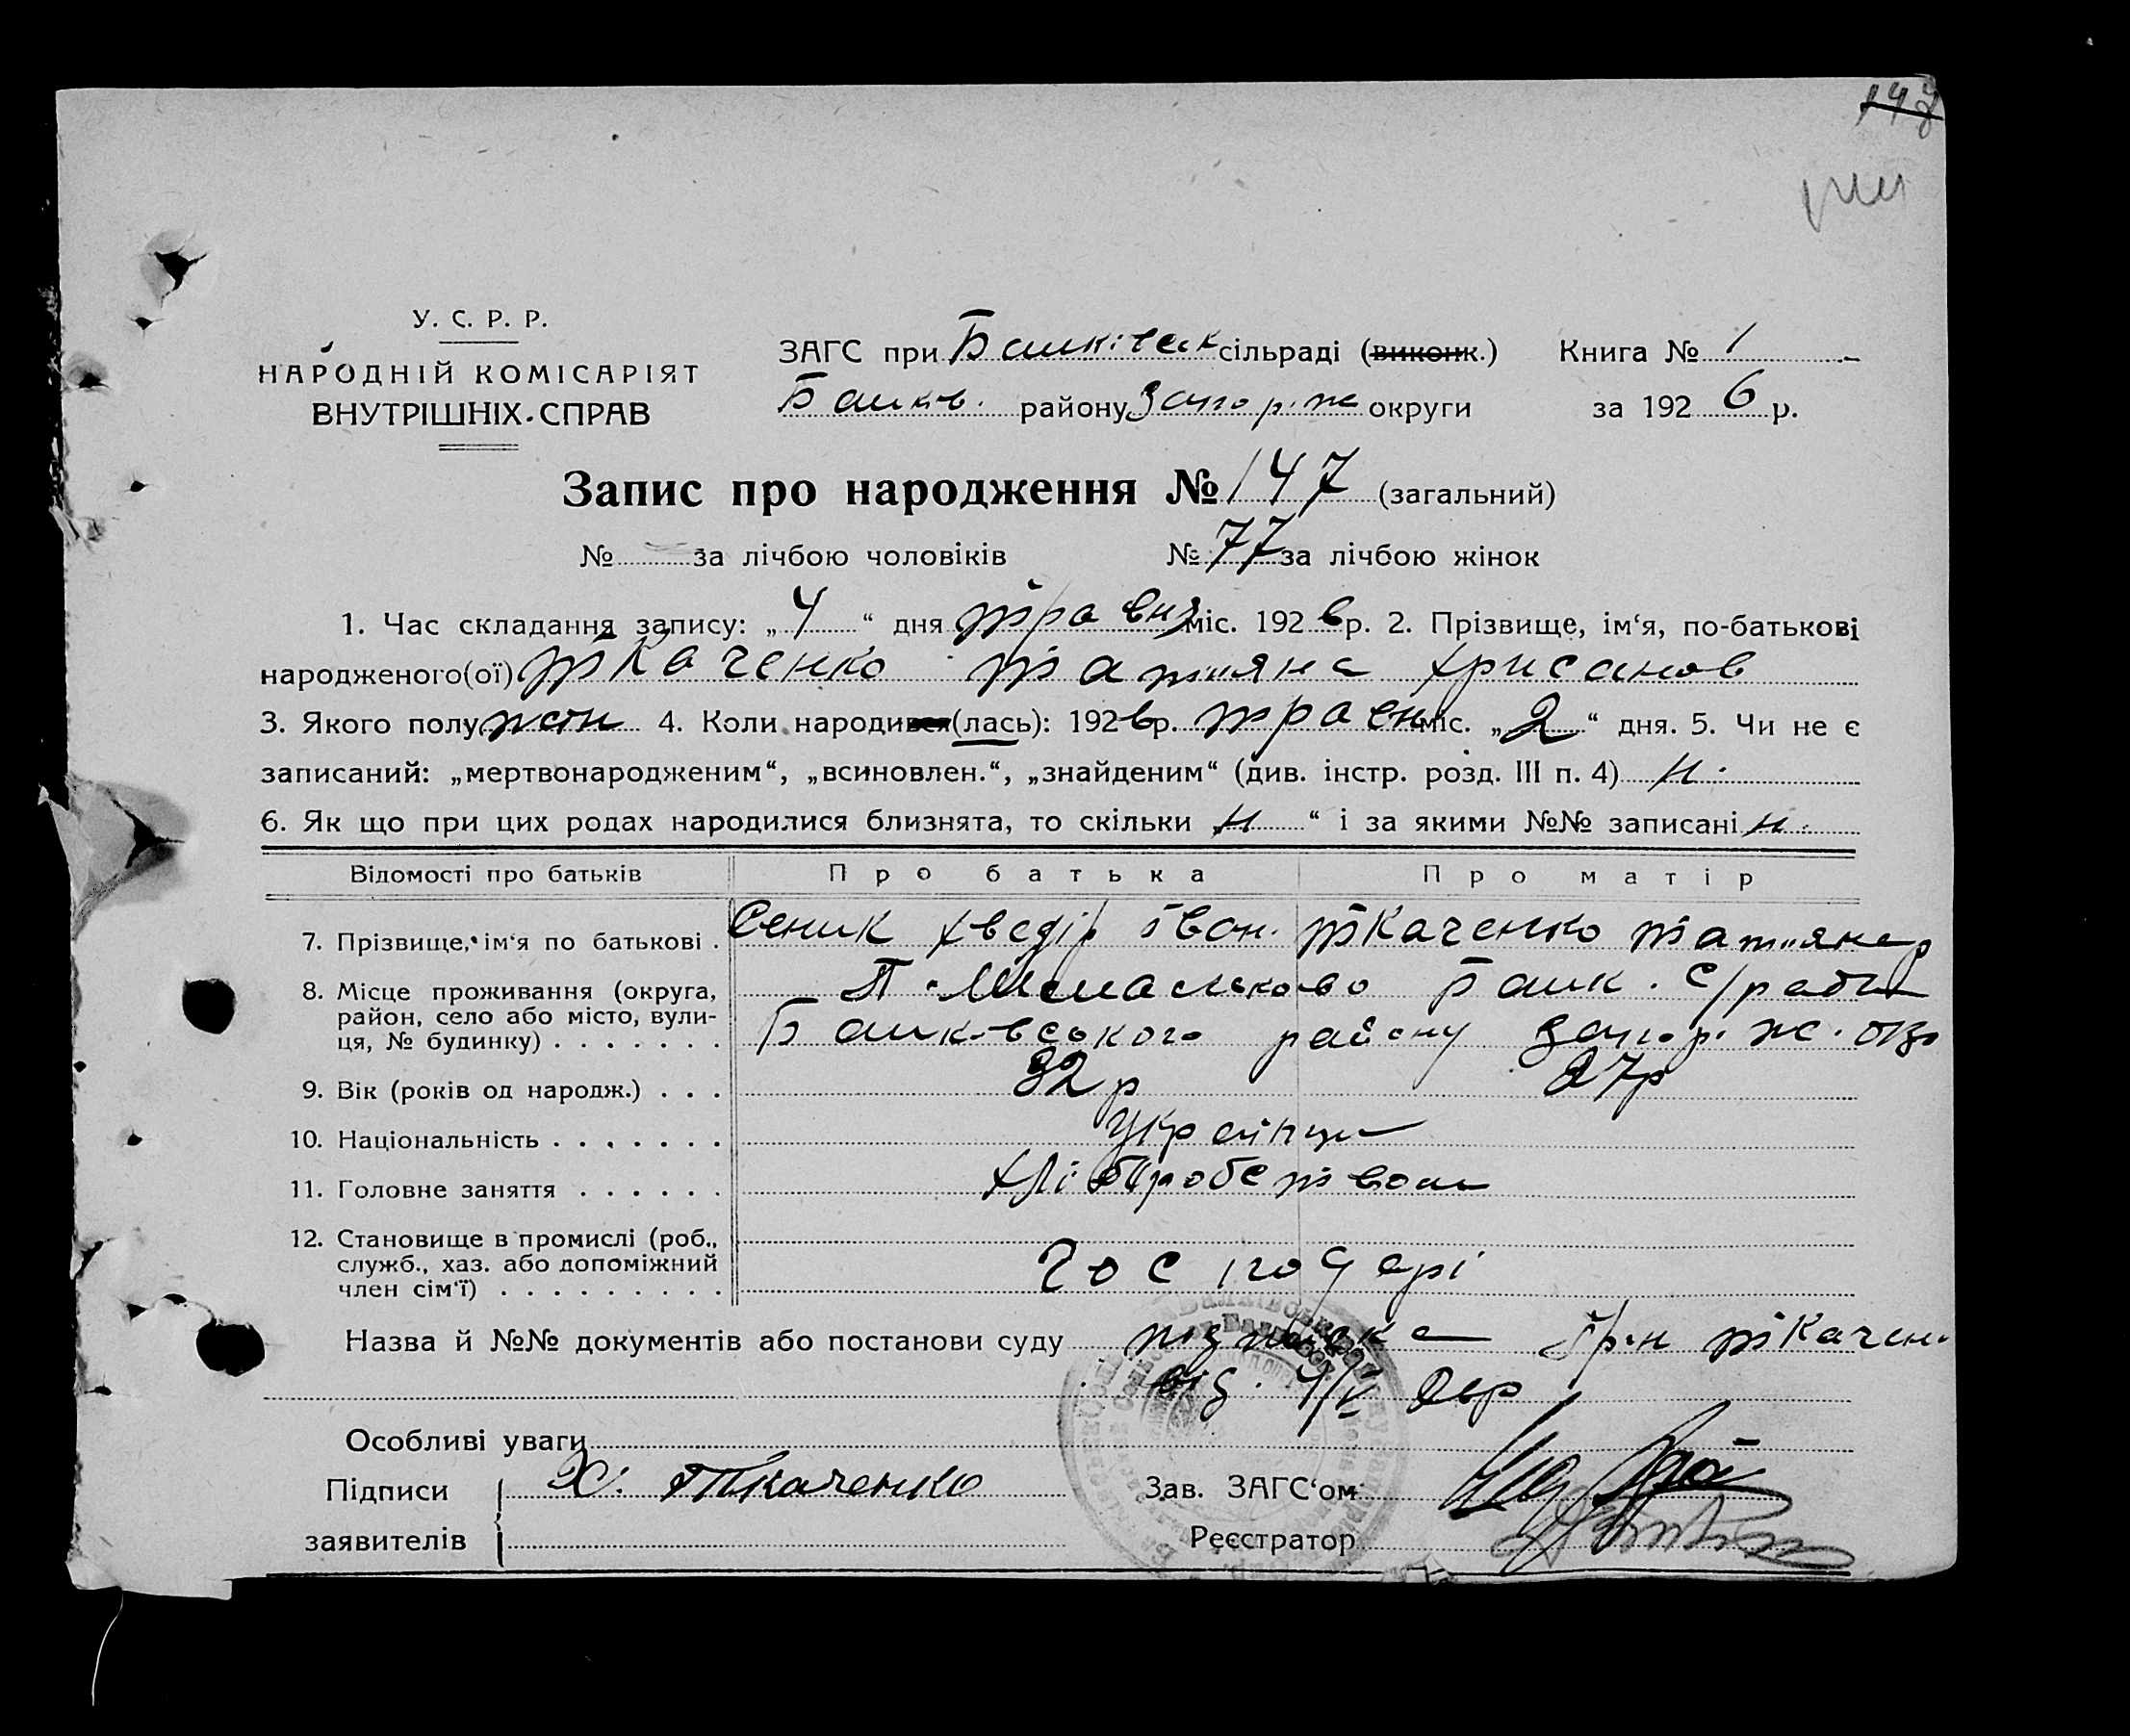 147
У. С. Р. Р.
НАРОДНІЙ КОМІСАРІЯТ
ВНУТРІШНІХ СПРАВ
ЗАГС при сільраді (виконк.) Книга № 1
району Запоріж округи за 1926 р.
Запис про народження № 147 (загальний)
№ за лічбою чоловіків № 77 за лічбою жінок
1. Час складання запису: „4“ дня травня міс. 1926 р. 2. Прізвище, ім‘я, по-батькові
народженого(ої) Ткаченко Татьяна Хрисанов
3. Якого полу жін 4. Коли народився(лась): 1926 р. травн міс. „2“ дня. 5. Чи не є
записаний: „мертвонародженим“, „всиновлен.“, „знайденим“ (див. інстр. розд. III п. 4) н.
6. Як що при цих родах народилися близнята, то скільки н “ і за якими №№ записані н.
Відомості про батьків Про батька Про матір
7. Прізвище, ім‘я по батькові . Сеник Хведір Іван. Ткаченко Татьяна
8. Місце проживання (округа,
район, село або місто, вули-
ця, № будинку) . . . . . . . району Запоріж.
9. Вік (років од народж.) . . . 32 р 27 р
10. Національність . . . . . . . Українци
11. Головне заняття . . . . . . Хліборобством
12. Становище в промислі (роб.,
служб., хаз. або допоміжний
член сім‘ї) . . . . . . . . . Господарі
Назва й №№ документів або постанови суду підписка Гр-н Ткачен.
від 4/V 26 р
Особливі уваги
Підписи Х. Ткаченко Зав. ЗАГС‘ом
заявителів Реєстратор